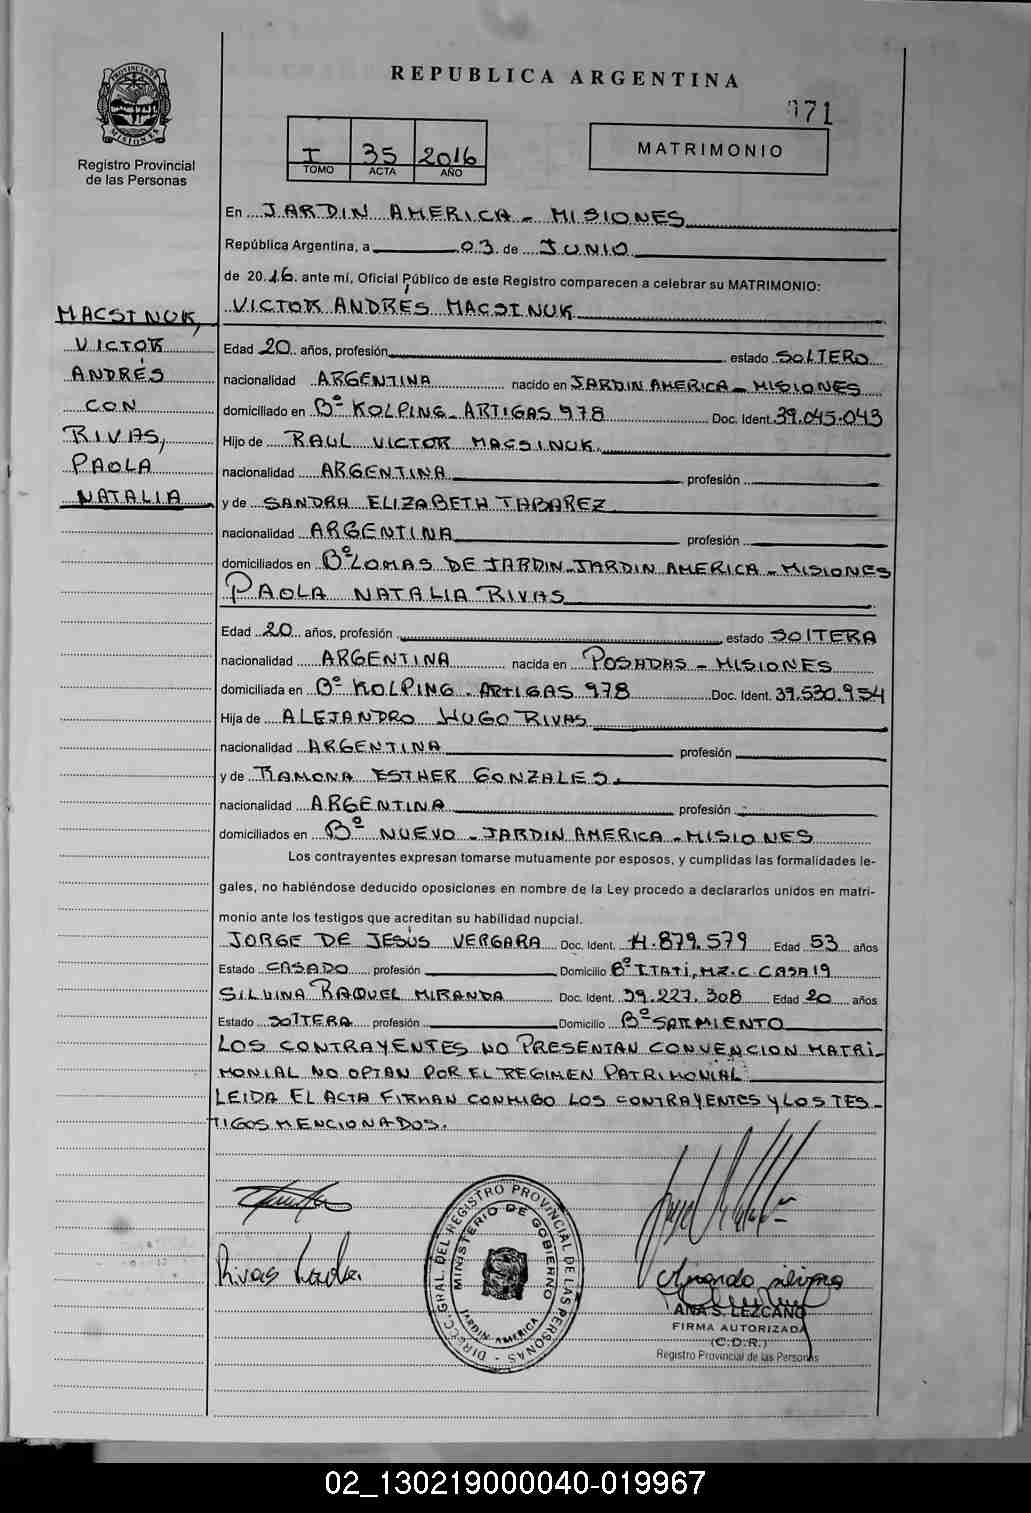 REPUBLICA ARGENTINA
071
PROVINCIA DE MISIONES
Registro Provincial
de las Personas
I 35 2016
TOMO ACTA AÑO
MATRIMONIO
En JARDIN AMERICA - MISIONES
República Argentina, a 03 de JUNIO
de 2016 ante mí, Oficial Público de este Registro comparecen a celebrar su MATRIMONIO:
VICTOR ANDRÉS MACSINUK
MACSINUK,
VICTOR
ANDRÉS
CON
RIVAS,
PAOLA
NATALIA
Edad 20 años, profesión estado SOLTERO
nacionalidad ARGENTINA nacido en JARDIN AMERICA - MISIONES
domiciliado en Bº KOLPING - ARTIGAS 978 Doc. Ident. 39.045.043
Hijo de RAUL VICTOR MACSINUK
nacionalidad ARGENTINA profesión
y de SANDRA ELIZABETH TABAREZ
nacionalidad ARGENTINA profesión
domiciliados en Bº LOMAS DE JARDIN - JARDIN AMERICA - MISIONES
PAOLA NATALIA RIVAS
Edad 20 años, profesión estado SOLTERA
nacionalidad ARGENTINA nacida en POSADAS - MISIONES
domiciliada en Bº KOLPING - ARTIGAS 978 Doc. Ident. 39.530.954
Hija de ALEJANDRO HUGO RIVAS
nacionalidad ARGENTINA profesión
y de RAMONA ESTHER GONZALES
nacionalidad ARGENTINA profesión
domiciliados en Bº NUEVO - JARDIN AMERICA - MISIONES
Los contrayentes expresan tomarse mutuamente por esposos, y cumplidas las formalidades le-
gales, no habiéndose deducido oposiciones en nombre de la Ley procedo a declararlos unidos en matri-
monio ante los testigos que acreditan su habilidad nupcial.
JORGE DE JESÚS VERGARA Doc. Ident. 879.579 Edad 53 años
Estado CASADO profesión Domicilio Bº ITATÍ, MZ. C CASA 19
SILVINA RAQUEL MIRANDA Doc. Ident. 39.227.308 Edad 20 años
Estado SOLTERA profesión Domicilio Bº SARMIENTO
LOS CONTRAYENTES NO PRESENTAN CONVENCION MATRI-
MONIAL NO OPTAN POR EL REGIMEN PATRIMONIAL
LEIDA EL ACTA FIRMAN CONMIGO LOS CONTRAYENTES Y LOS TES-
TIGOS MENCIONADOS.
DIRECC. GRAL. DEL REGISTRO PROVINCIAL DE LAS PERSONAS
MINISTERIO DE GOBIERNO
JARDIN AMERICA
Rivas
ANA S. LEZCANO
FIRMA AUTORIZADA
(C.D.R.)
Registro Provincial de las Personas
02_130219000040-019967